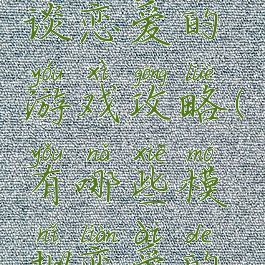 谈恋爱的
yóu xì gōng lüè
游戏攻略(
yǒu nǎ xiē mó
有哪些模
nǐ liàn ài de
拟恋爱的